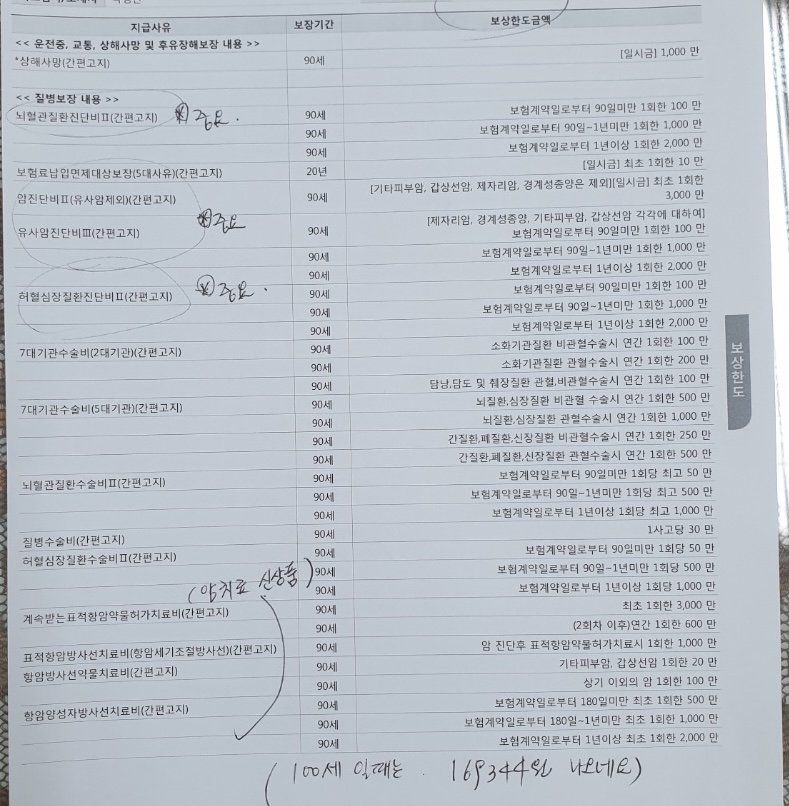 지급사유 보장기간 보상한도금액
<< 운전중, 교통, 상해사망 및 후유장해보장 내용 >>
*상해사망(간편고지) 90세 [일시금] 1,000 만
<< 질병보장 내용 >>
뇌혈관질환진단비II(간편고지) 중요. 90세 보험계약일로부터 90일미만 1회한 100 만
90세 보험계약일로부터 90일~1년미만 1회한 1,000 만
90세 보험계약일로부터 1년이상 1회한 2,000 만
보험료납입면제대상보장(5대사유)(간편고지) 20년 [일시금] 최초 1회한 10 만
암진단비II(유사암제외)(간편고지) 90세 [기타피부암, 갑상선암, 제자리암, 경계성종양은 제외][일시금] 최초 1회한
3,000 만
중요
유사암진단비III(간편고지) 90세 [제자리암, 경계성종양, 기타피부암, 갑상선암 각각에 대하여]
보험계약일로부터 90일미만 1회한 100 만
90세 보험계약일로부터 90일~1년미만 1회한 1,000 만
90세 보험계약일로부터 1년이상 1회한 2,000 만
허혈심장질환진단비II(간편고지) 중요. 90세 보험계약일로부터 90일미만 1회한 100 만
90세 보험계약일로부터 90일~1년미만 1회한 1,000 만
90세 보험계약일로부터 1년이상 1회한 2,000 만
7대기관수술비(2대기관)(간편고지) 90세 소화기관질환 비관혈수술시 연간 1회한 100 만
90세 소화기관질환 관혈수술시 연간 1회한 200 만
90세 담낭,담도 및 췌장질환 관혈,비관혈수술시 연간 1회한 100 만
7대기관수술비(5대기관)(간편고지) 90세 뇌질환,심장질환 비관혈 수술시 연간 1회한 500 만
90세 뇌질환,심장질환 관혈수술시 연간 1회한 1,000 만
90세 간질환,폐질환,신장질환 비관혈수술시 연간 1회한 250 만
90세 간질환,폐질환,신장질환 관혈수술시 연간 1회한 500 만
뇌혈관질환수술비II(간편고지) 90세 보험계약일로부터 90일미만 1회당 최고 50 만
90세 보험계약일로부터 90일~1년미만 1회당 최고 500 만
90세 보험계약일로부터 1년이상 1회당 최고 1,000 만
질병수술비(간편고지) 90세 1사고당 30 만
허혈심장질환수술비II(간편고지) 90세 보험계약일로부터 90일미만 1회당 50 만
90세 보험계약일로부터 90일~1년미만 1회당 500 만
(암치료 신상품)
90세 보험계약일로부터 1년이상 1회당 1,000 만
계속받는표적항암약물허가치료비(간편고지) 90세 최초 1회한 3,000 만
90세 (2회차 이후)연간 1회한 600 만
표적항암방사선치료비(항암세기조절방사선)(간편고지) 90세 암 진단후 표적항암약물허가치료시 1회한 1,000 만
항암방사선약물치료비(간편고지) 90세 기타피부암, 갑상선암 1회한 20 만
90세 상기 이외의 암 1회한 100 만
항암양성자방사선치료비(간편고지) 90세 보험계약일로부터 180일미만 최초 1회한 500 만
90세 보험계약일로부터 180일~1년미만 최초 1회한 1,000 만
90세 보험계약일로부터 1년이상 최초 1회한 2,000 만
(100세 일때는. 169344원 나오네요)
보상한도